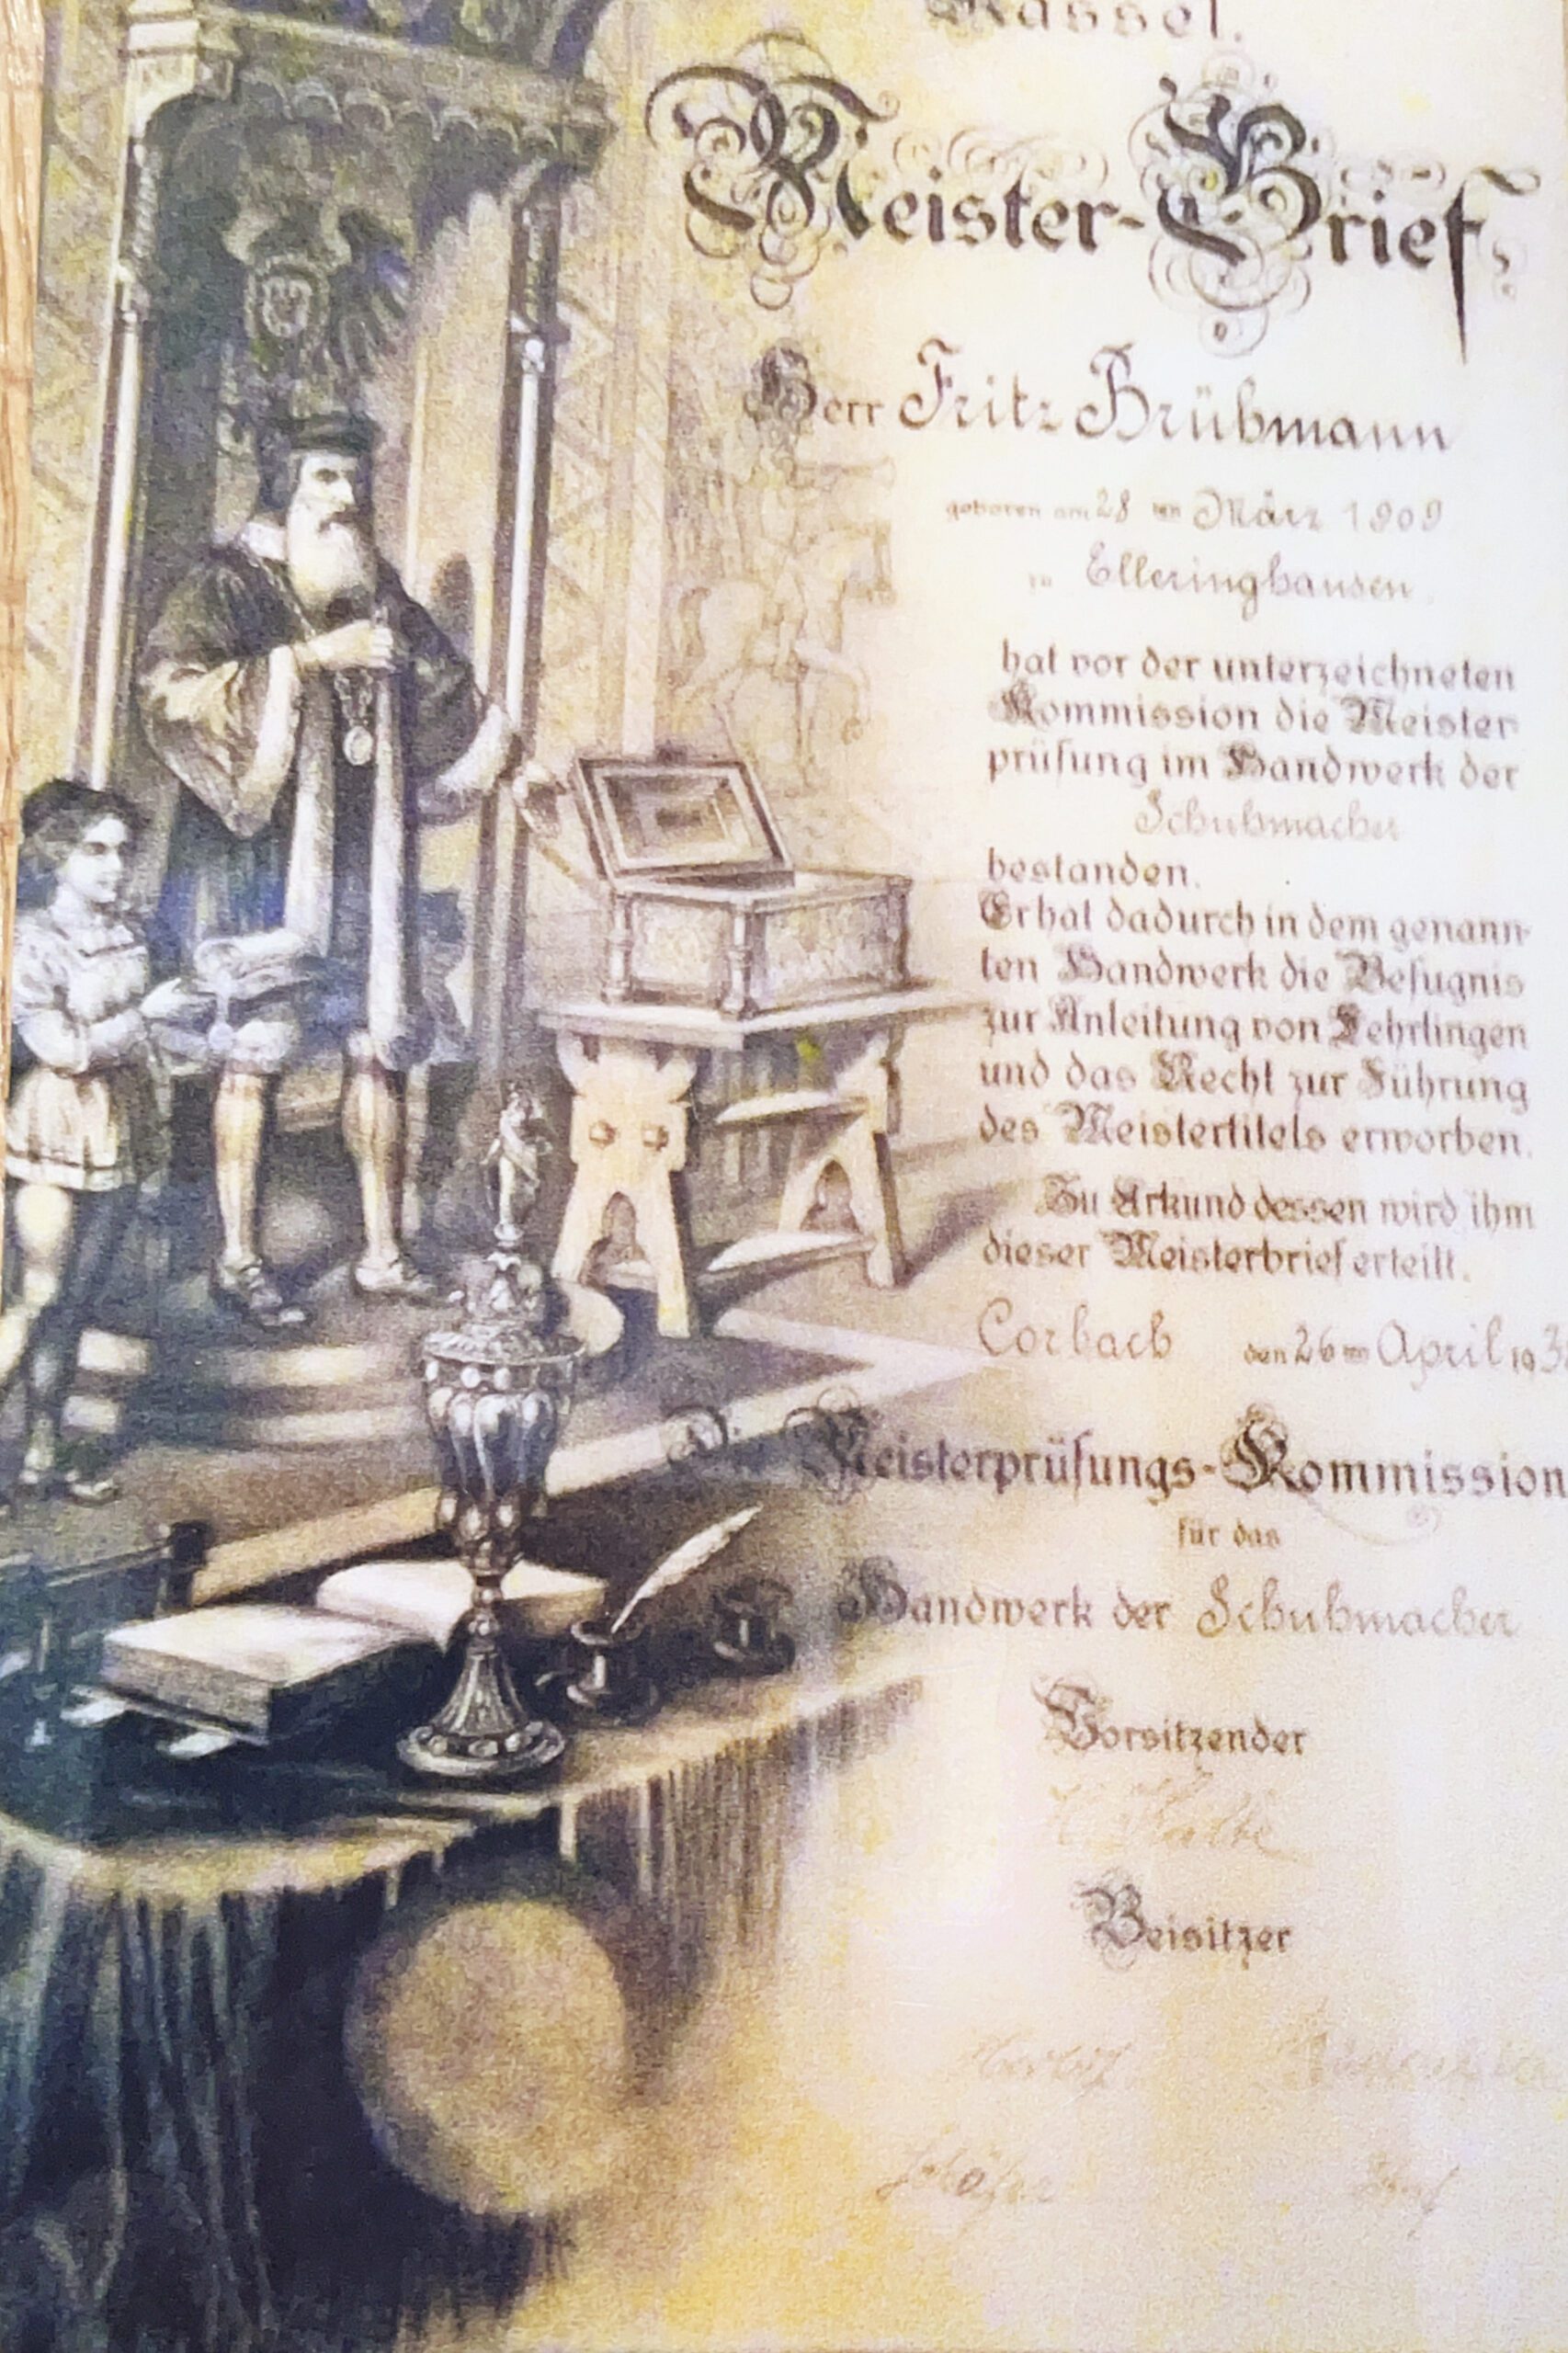 Kassel.
Meister-Brief.
Herr Fritz Brühmann
geboren am 28 ten März 1909
zu Elleringhausen.
hat vor der unterzeichneten
Kommission die Meister
prüfung im Handwerk der
Schuhmacher
bestanden.
Er hat dadurch in dem genann-
ten Handwerk die Befugnis
zur Anleitung von Lehrlingen
und das Recht zur Führung
des Meistertitels erworben.
Zu Urkund dessen wird ihm
dieser Meisterbrief erteilt.
Corbach den 26 ten April 193
Die Meisterprüfungs-Kommission
für das
Handwerk der Schuhmacher
Vorsitzender
Beisitzer
Schäfer